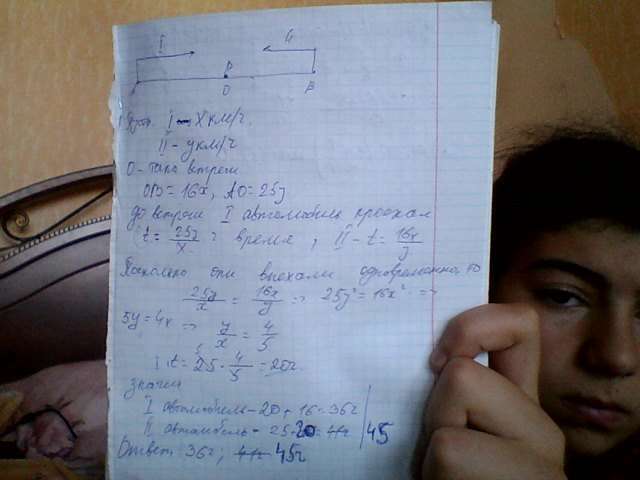 I II
A P O B
I - x км/ч.
II - y км/ч
O - встречи
OB = 16x, AO = 25y
до встречи I автомобиль проехал
t = 25y/x время, II - t = 16x/y
Поскольку они выехали одновременно, то
25y/x = 16x/y => 25y² = 16x² =>
5y = 4x => y/x = 4/5
t = 25 · 4/5 = 20ч.
Значит
I автомобиль - 20 + 16 = 36ч
II автомобиль - 25 + 20 = 45
Ответ: 36ч; 45ч